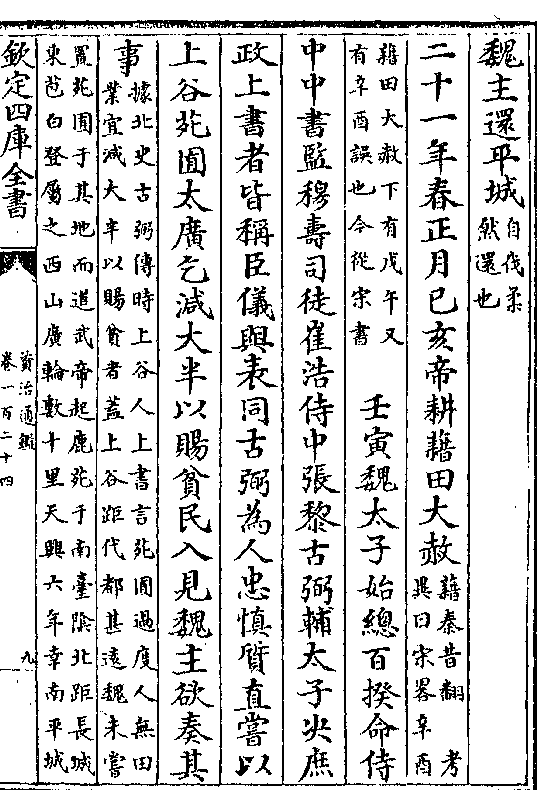 魏主還平城自伐柔
然還也
二十一年春正月己亥帝耕藉田大赦藉秦昔翻 考
異曰宋畧辛酉
藉田大赦下有戊午又
有辛酉誤也今從宋書 壬寅魏太子始總百揆命侍
中中書監穆壽司徒崔浩侍中張黎古弼輔太子决庶
政上書者皆稱臣儀與表同古弼為人忠慎質直嘗以
上谷苑囿太廣乞減大半以賜貧民入見魏主欲奏其
事據北史古弼傳時上谷人上書言苑囿過度人無田
業宜減大半以賜貧者蓋上谷距代都甚逺魏未嘗
置苑囿于其地而道武帝起鹿苑于南臺隂北距長城
東苞白登屬之西山廣輪數十里天興六年幸南平城
欽定四庫全書
資治通鑑
卷一百二十四
九